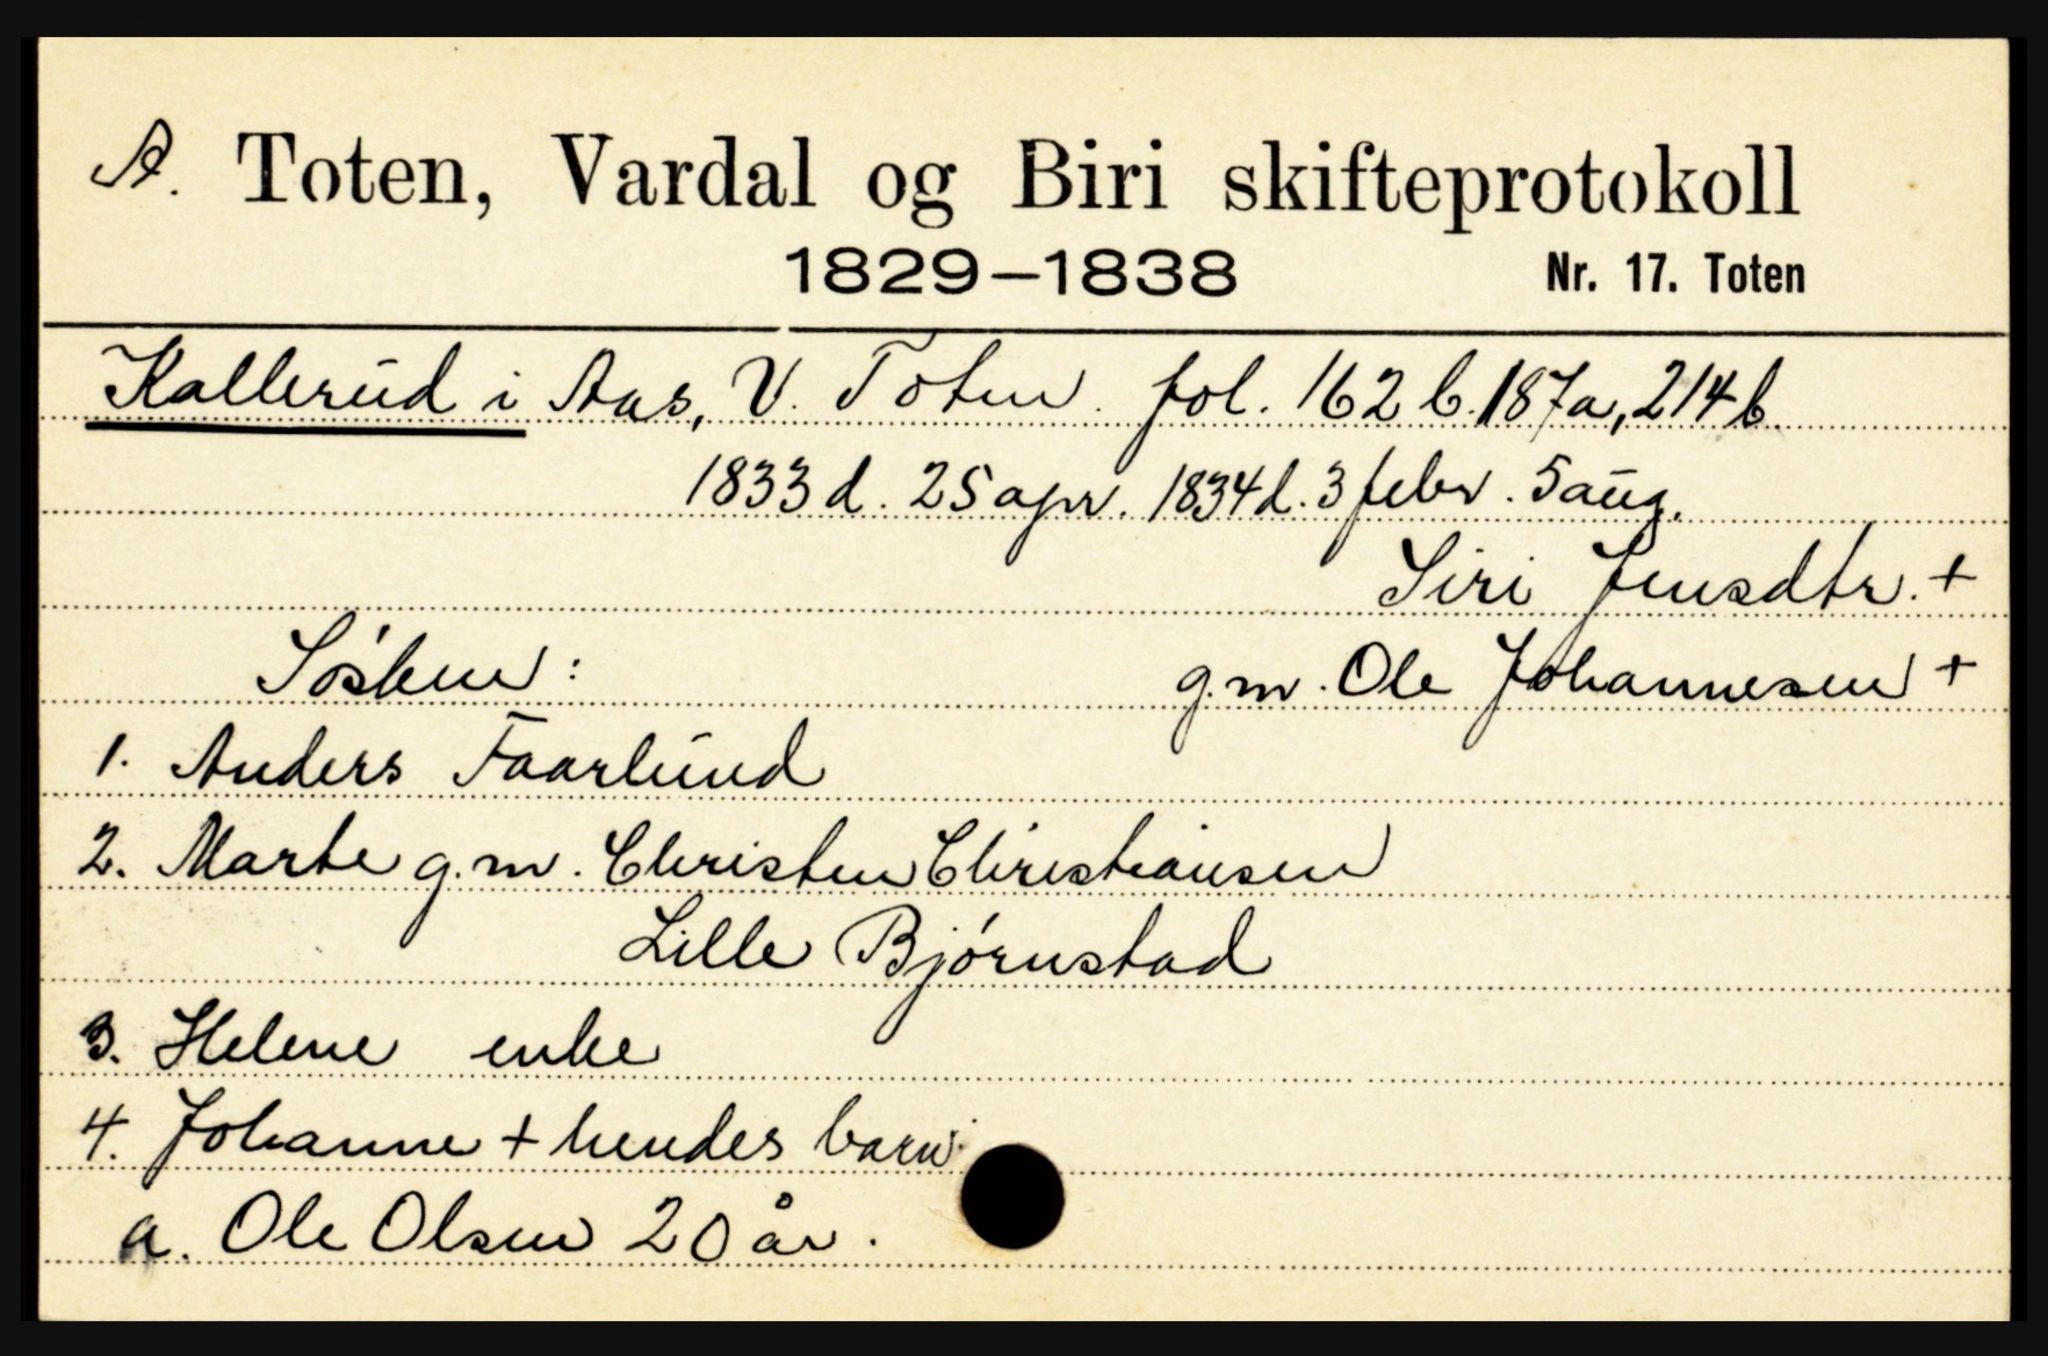 A. Toten, Vardal og Biri skifteprotokoll
1829–1838 Nr. 17. Toten
Kallerud i Aas, V. Toten. fol. 162 b. 187a, 214 b.
1833 d. 25 apr. 1834 d. 3 febr. 5 aug.
Siri Jensdtr. +
Søsken: g.m. Ole Johannesen +
1. Anders Faarlund
2. Marte g.m. Christen Christiansen
Lille Bjørnstad
3. Helene enke
4. Johanne + hendes barn:
a. Ole Olsen 20 år.